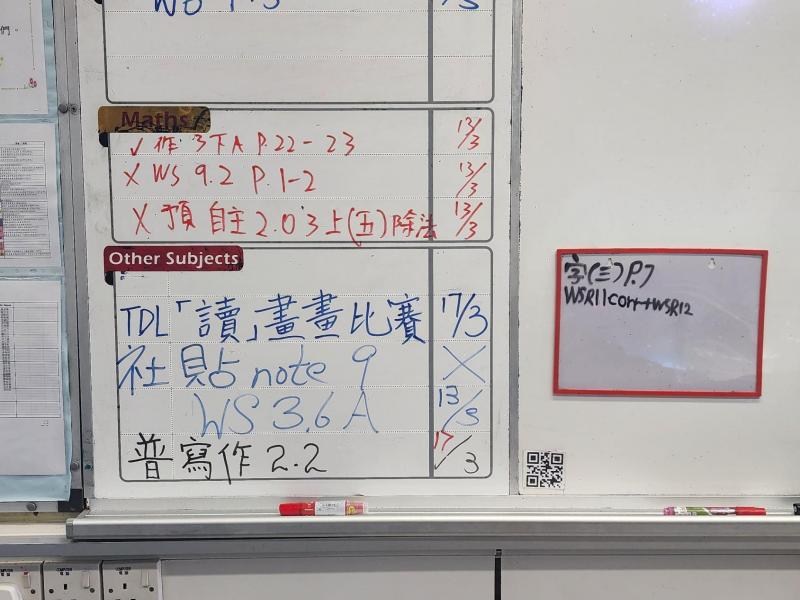 Maths
✓ 作 3下A P.22-23 13/3
X WS 9.2 P.1-2 13/3
X 預 自主2.0 3上(五)除法 13/3
Other Subjects
TDL「讀」畫畫比賽 17/3
社 貼 note 9 X
WS 3.6 A 13/3
普 寫作 2.2 17/3
字(三)P.7
WSR11corr+WSR12